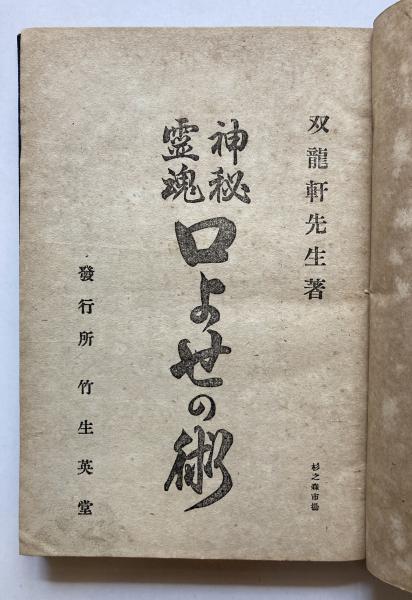 双龍軒先生著
杉之森市場
神秘
靈魂
口よせの術
發行所 竹生英堂